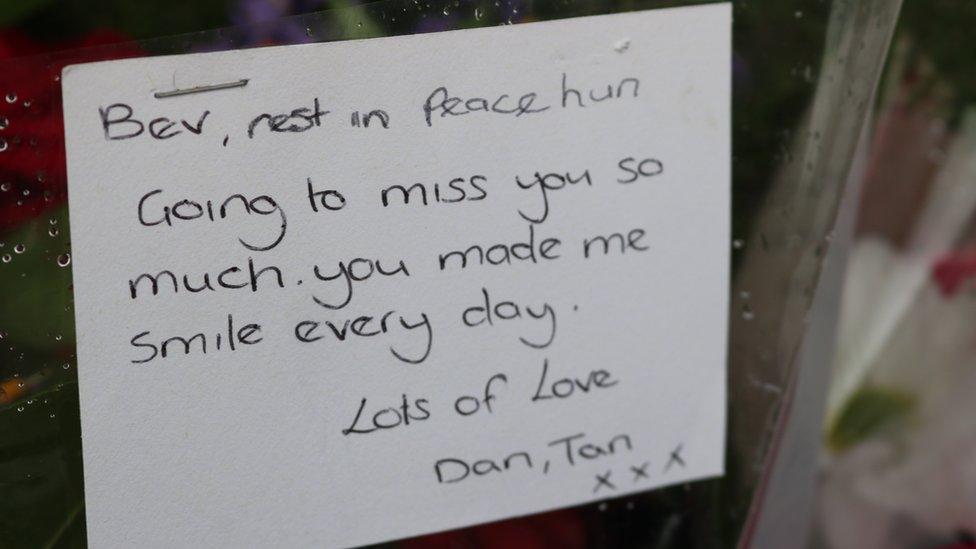 Bev, rest in Peace hun
Going to miss you so
much. you made me
smile every day.
Lots of Love
Dan, Tan
x x x